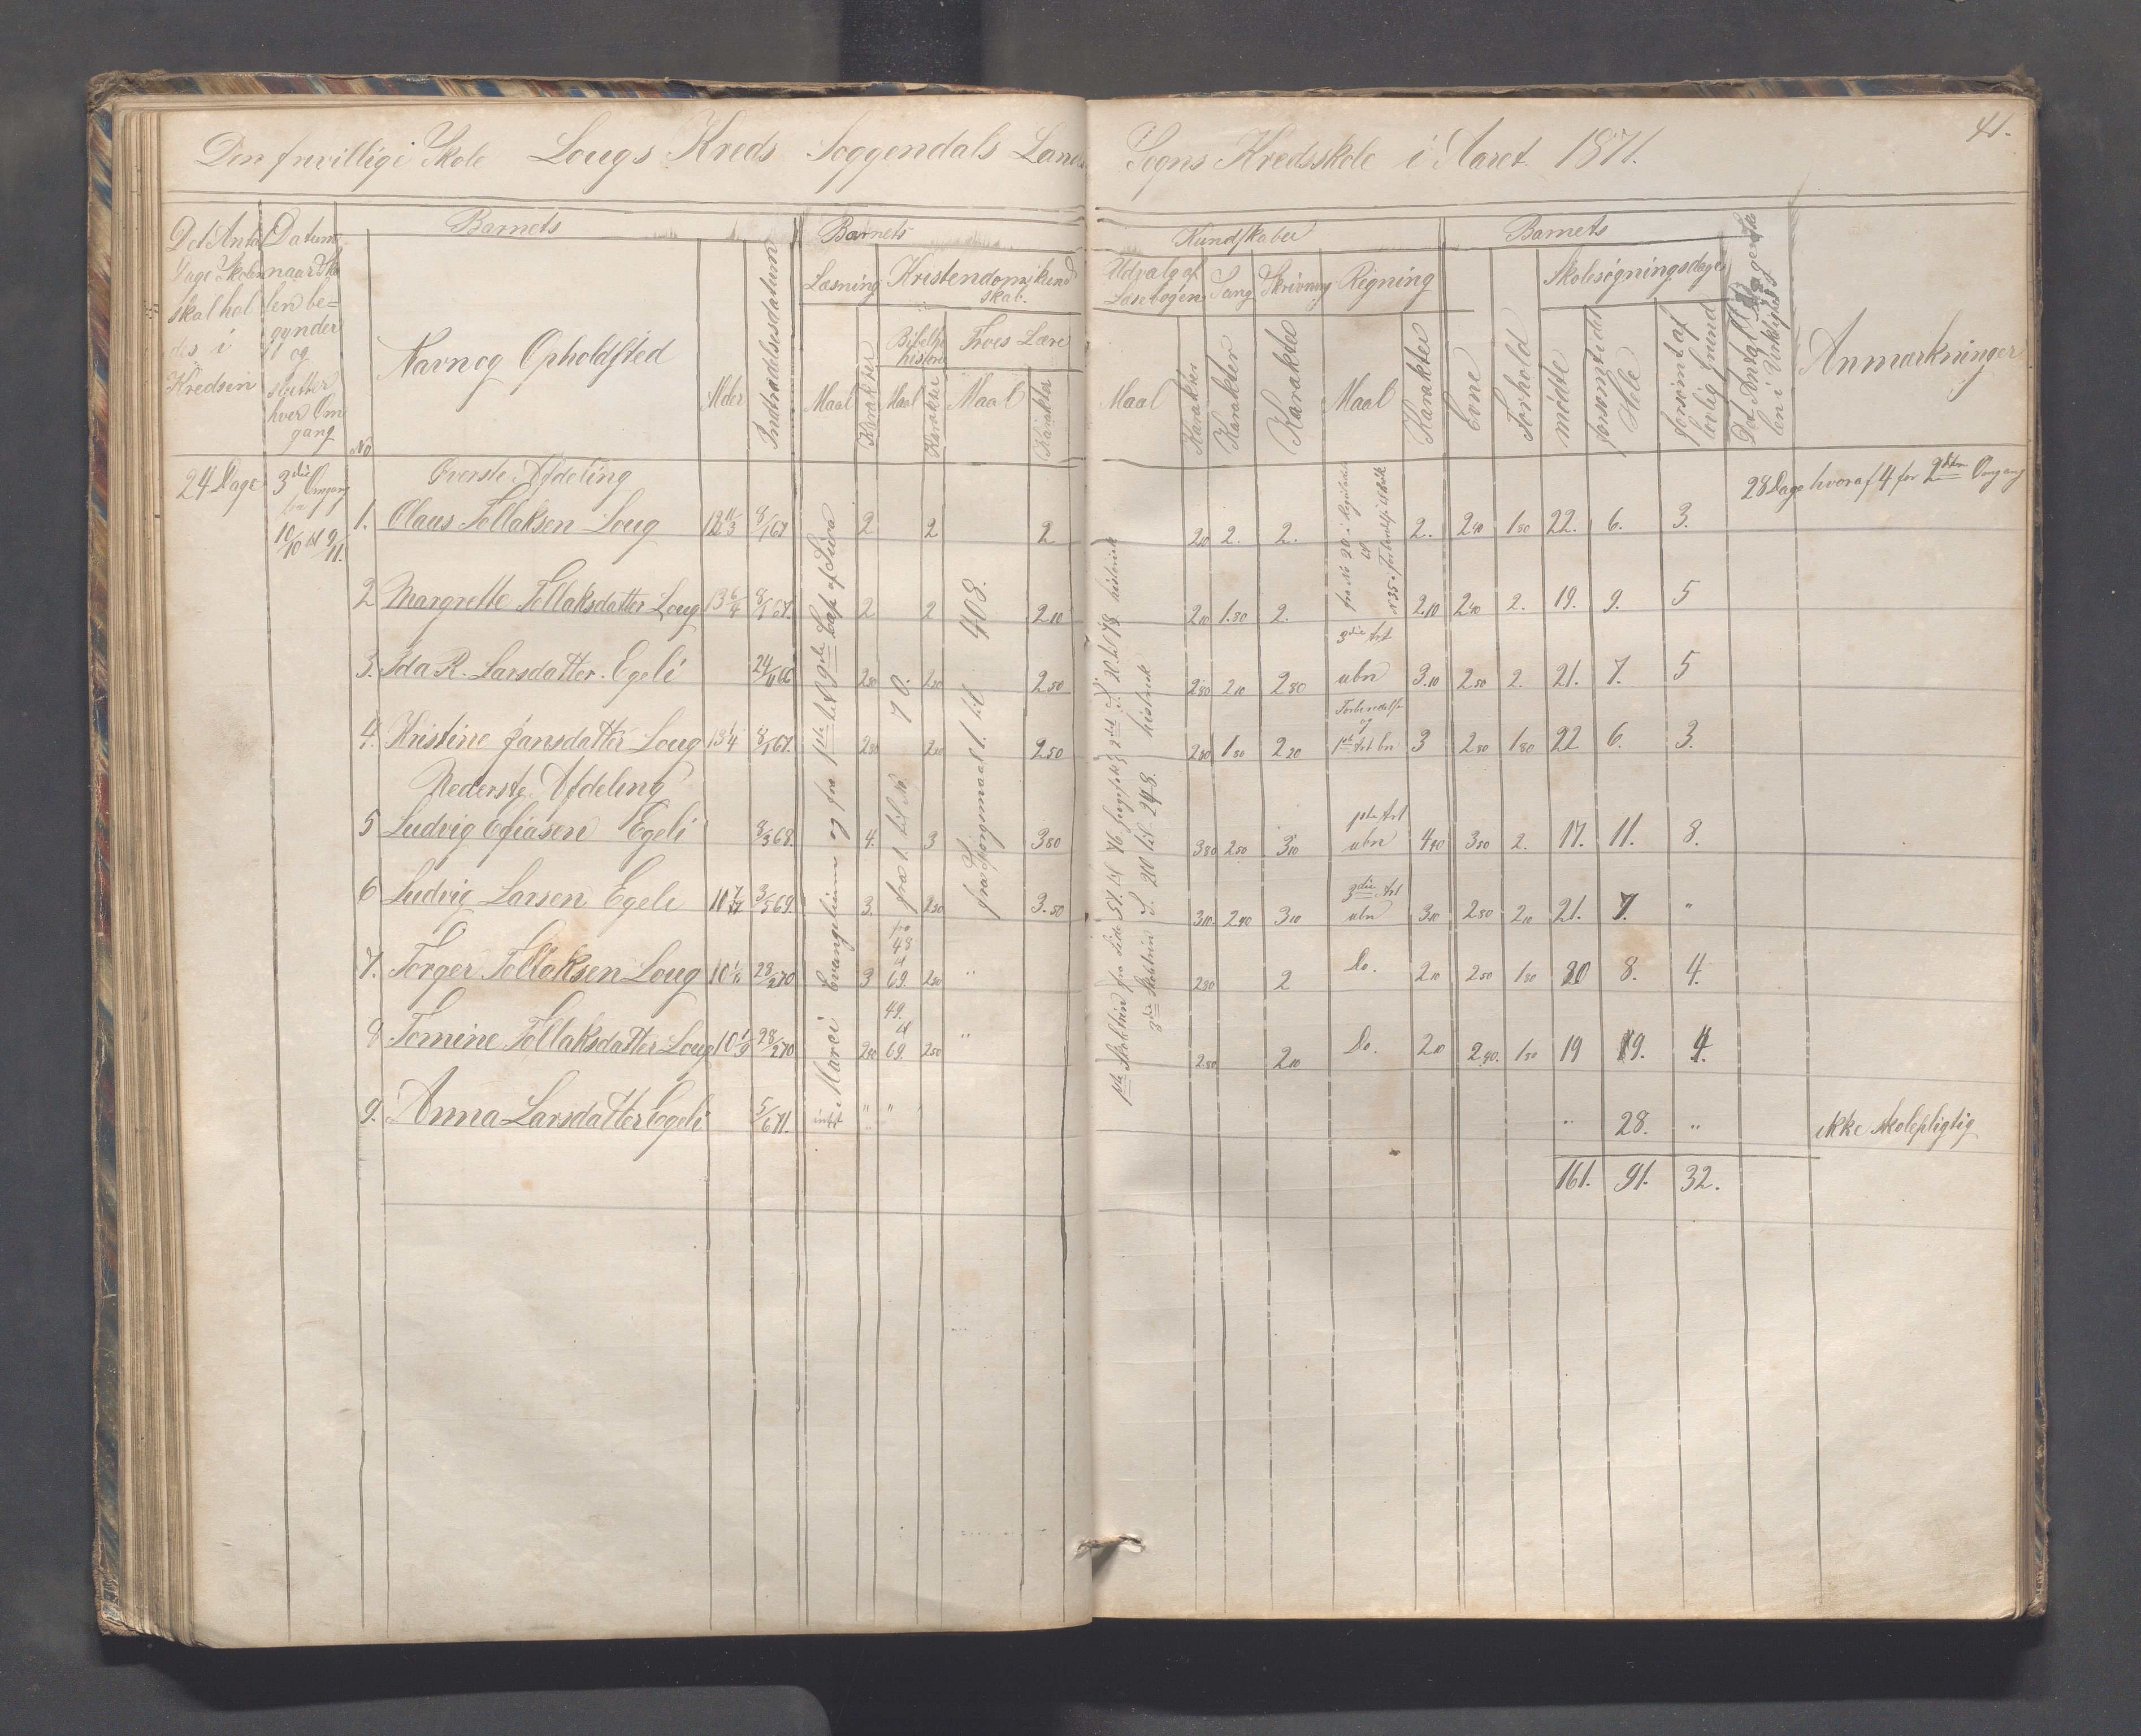 41.
Den frivillige Skole Lougs Kreds Soggendals Land Sogns Kredsskole i Aaret 1871.
Det Antal Dage Skolen skal holdes i Kredsen
Datum naar Skolen begynder og slutter hver Omgang
Barnets
No
Navn og Opholdssted
Alder
Indtrædelsesdatum
Barnets
Læsning
Maal
Karakter
Kristendomskundskab.
Bibelhistorie
Maal
Karakter
Troes Lære
Maal
Karakter
Kundskaber
Udvalg af Læsebogen
Maal
Karakter
Sang
Karakter
Skrivning
Karakter
Regning
Maal
Karakter
Barnets
Evne
Forhold
Skolesøgningsdage
mødte
forsømt i det Hele
forsømt af lovlig Grund
Det Antal Dage
Anmærkninger
24 Dage 3die Omgang
10/10 til 9/11.
Øverste Afdeling
28 Dage hvoraf 4 for 2den Omgang
1. Olaus Tollaksen Loug 8/1 67 2 2 2 2 10 2. 2. 2. 2 40 1 80 22. 6. 3.
2 Margrette Tollaksdatter Loug 13 6/4 8/1 67. 2 2 2 10 2 10 1.80 2. 2.10 2 40 2. 19. 9. 5
3. Ida R. Larsdatter Egeli 24/11 66 2 50 2 50 2 50 2 80 2 10 2 80 3die Art ubn 3.10 2 50 2. 21. 7. 5
4. Kristine Jansdatter Loug 13 1/4 8/1 67. 2 50 2 50 2 50 1 80 2 20 Forberedelse og 1ste Art bn 3 2 50 1 80 22 6. 3.
Nederste Afdeling
5 Ludvig Efiasen Egeli 8/3 68. 4. 3 3 80 3 80 2 50 3 10 1ste Art ubn 4 40 3 50 2. 17. 11. 8.
6 Ludvig Larsen Egeli 3/5 69. 3. 2 50 3.50 3 10. 2 40 3 10 3die Art ubn 3 10 2 50 2 10 21. 7. "
7. Torger Tollaksen Loug 28/2 70 3 fra 48 til 69. 2 50 " 2 80 2 Do. 2 10 2 50 1 80 20 8. 4.
8 Tomine Tollaksdatter Loug 10 1/9 28/2 70 2 50 49. til 69. 2 50 " 2.80 2 10 Do. 2 10 2 40. 1 80 19 9. 4.
9. Anna Larsdatter Egeli 5/6 71. intet " " " 28. " ikke skolepligtig
161. 91. 32.
Marci Evangelium og fra 1ste til 9de Kap. af
fra 1. til No 70.
fra Spørgsmaal 1. til 408.